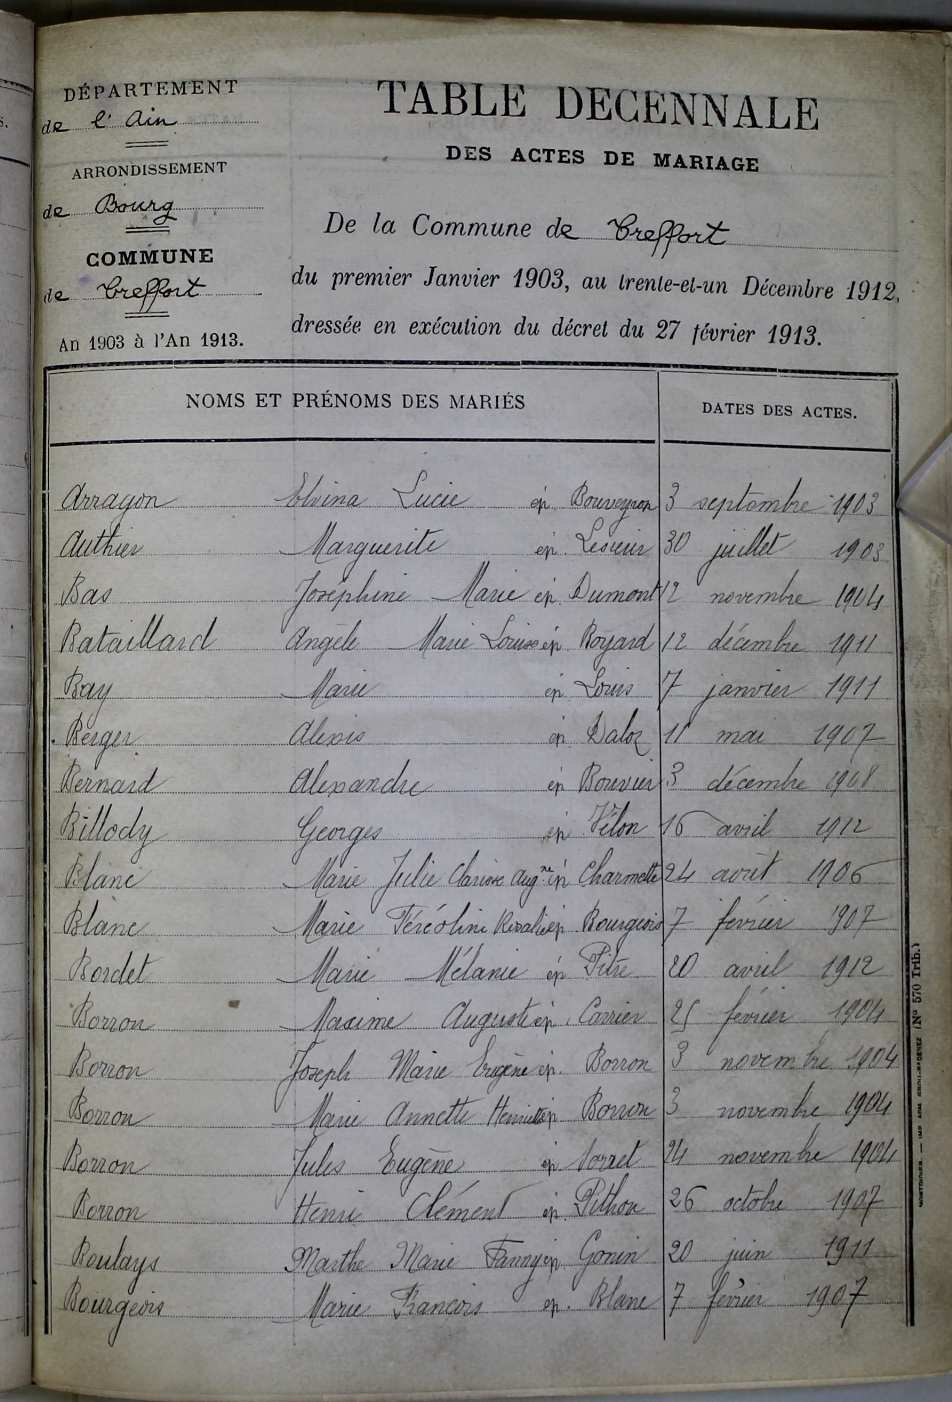 DÉPARTEMENT
de l'Ain
ARRONDISSEMENT
de Bourg
COMMUNE
de Treffort
An 1903 à l'An 1913.
TABLE DECENNALE
DES ACTES DE MARIAGE
De la Commune de Treffort
du premier Janvier 1903, au trente-et-un Décembre 1912,
dressée en exécution du décret du 27 février 1913.
NOMS ET PRÉNOMS DES MARIÉS DATES DES ACTES.
Arragon Elvina Lucie ép. Bouveyron 3 septembre 1903
Authier Marguerite ép. Lesieur 30 juillet 1903
Bas Joséphine Marie ép. Dumont 12 novembre 1904
Bataillard Angèle Marie Louise ép. Boyard 12 décembre 1911
Bay Marie ép. Louis 7 janvier 1911
Berger Alexis ép. Daloz 11 mai 1907
Bernard Alexandre ép. Bouvier 3 décembre 1908
Billody Georges ép. Vélon 16 avril 1912
Blanc Marie Julie Augne ép. Charmette 24 août 1906
Blanc Marie ép. Bourgeois 7 février 1907
Bordet Marie Mélanie ép. Pitre 20 avril 1912
Borron Maxime Auguste ép. Carrier 25 février 1904
Borron Joseph Marie Eugène ép. Borron 3 novembre 1904
Borron Marie Annette Henriette ép. Borron 3 novembre 1904
Borron Jules Eugène ép. 24 novembre 1904
Borron Henri Clément ép. Pithou 26 octobre 1907
Boulays Marthe Marie Fanny ép. Gonin 20 juin 1911
Bourgeois Marie François ép. Blanc 7 février 1907
(N° 570 Trib.)